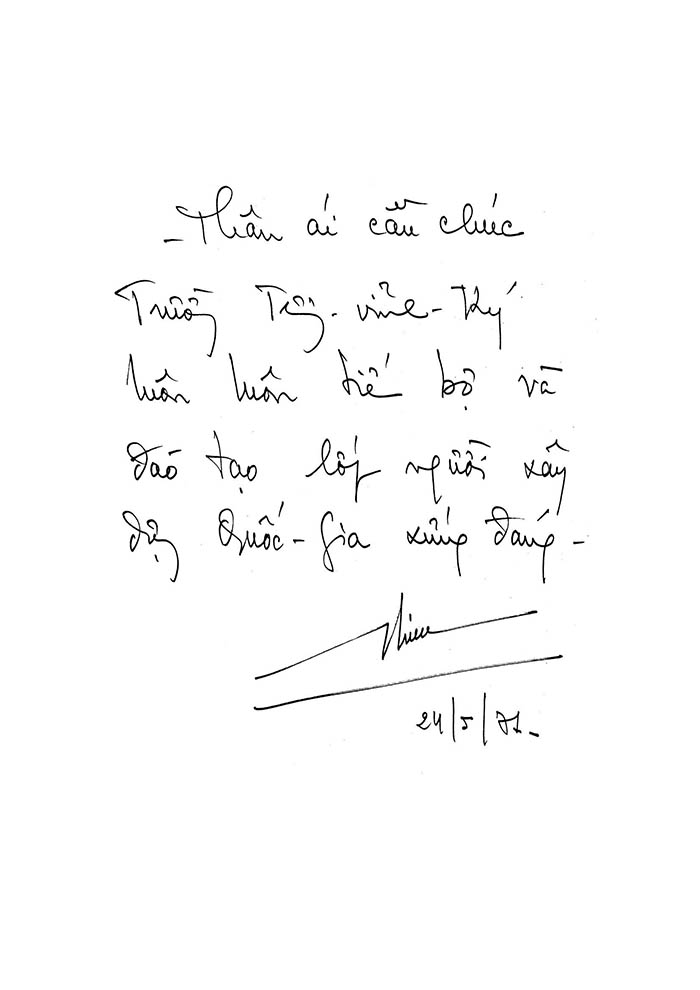 - Thân ái cầu chúc
Trường Trg - vĩnh - Ký
luôn luôn tiến bộ và
đào tạo lớp người xây
dựng Quốc - Gia xứng đáng -
24/5/71 -